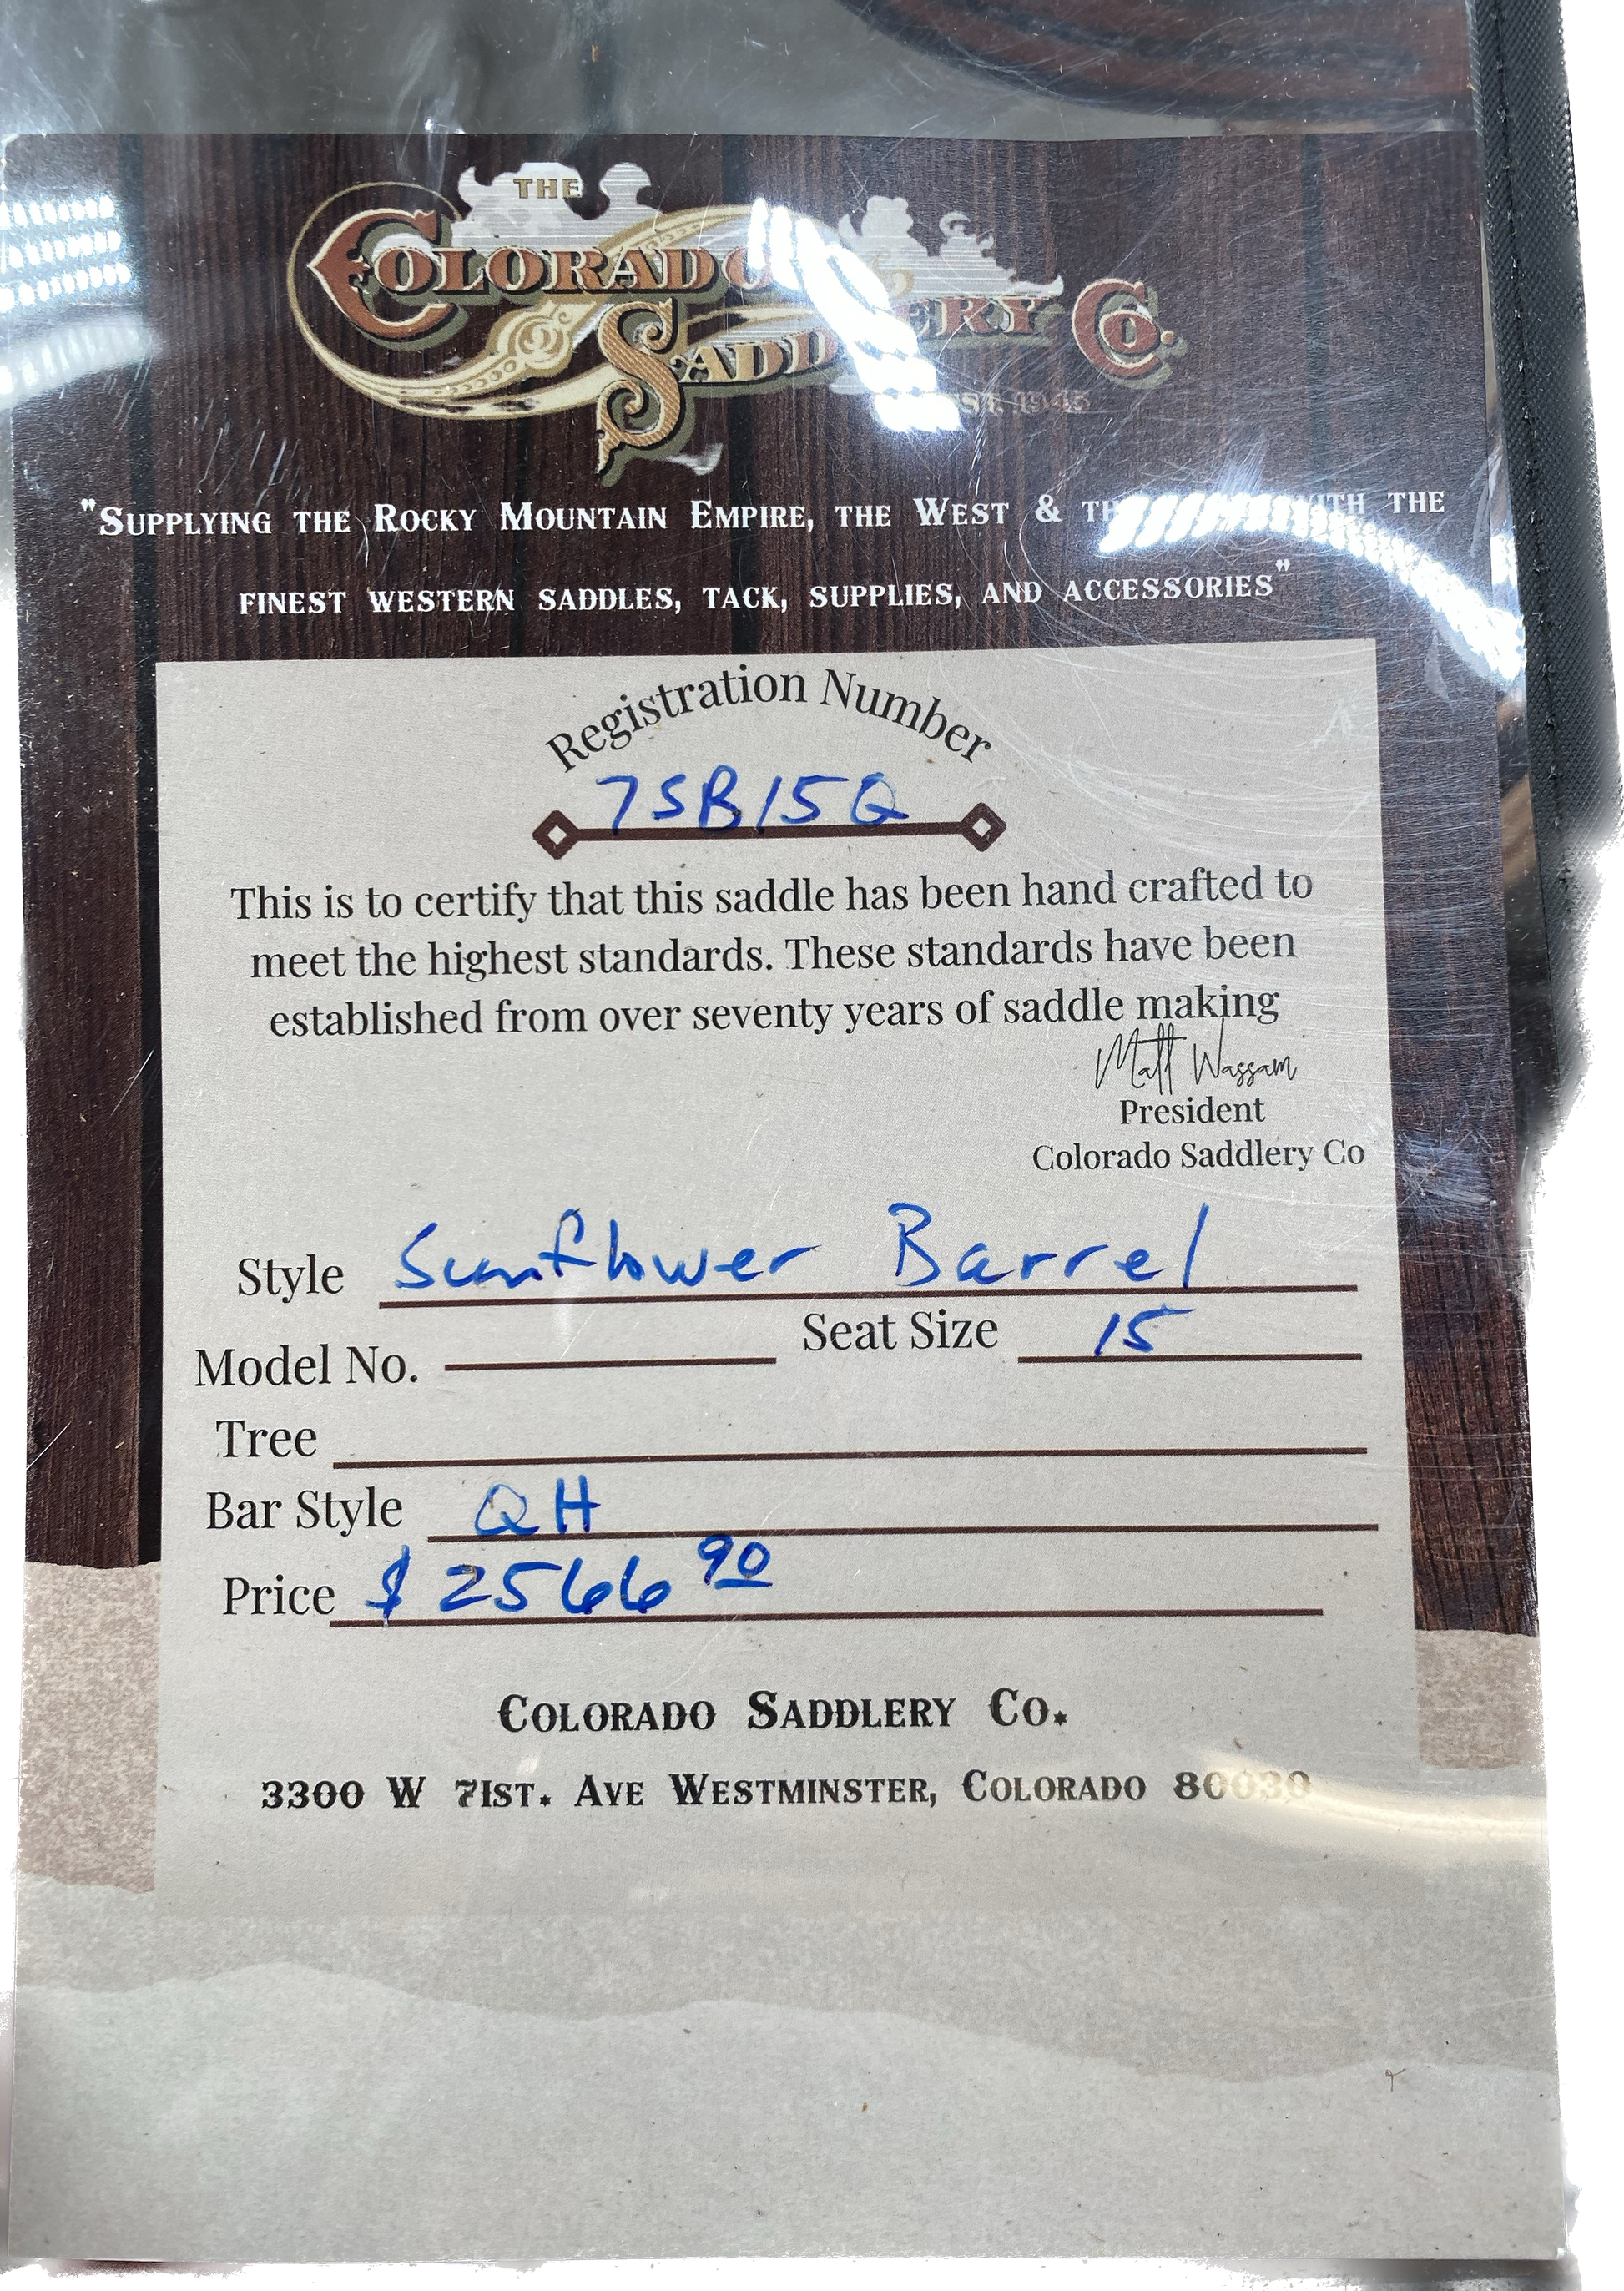 THE
COLORADO
SADDLERY CO.
EST. 1945
"SUPPLYING THE ROCKY MOUNTAIN EMPIRE, THE WEST & WITH THE
FINEST WESTERN SADDLES, TACK, SUPPLIES, AND ACCESSORIES"
Registration Number
7SB15Q
This is to certify that this saddle has been hand crafted to
meet the highest standards. These standards have been
established from over seventy years of saddle making
Matt Wassam
President
Colorado Saddlery Co
Style Sunflower Barrel
Model No. Seat Size 15
Tree
Bar Style QH
Price $ 2566 90
COLORADO SADDLERY CO.
3300 W 71ST. AVE WESTMINSTER, COLORADO 80030